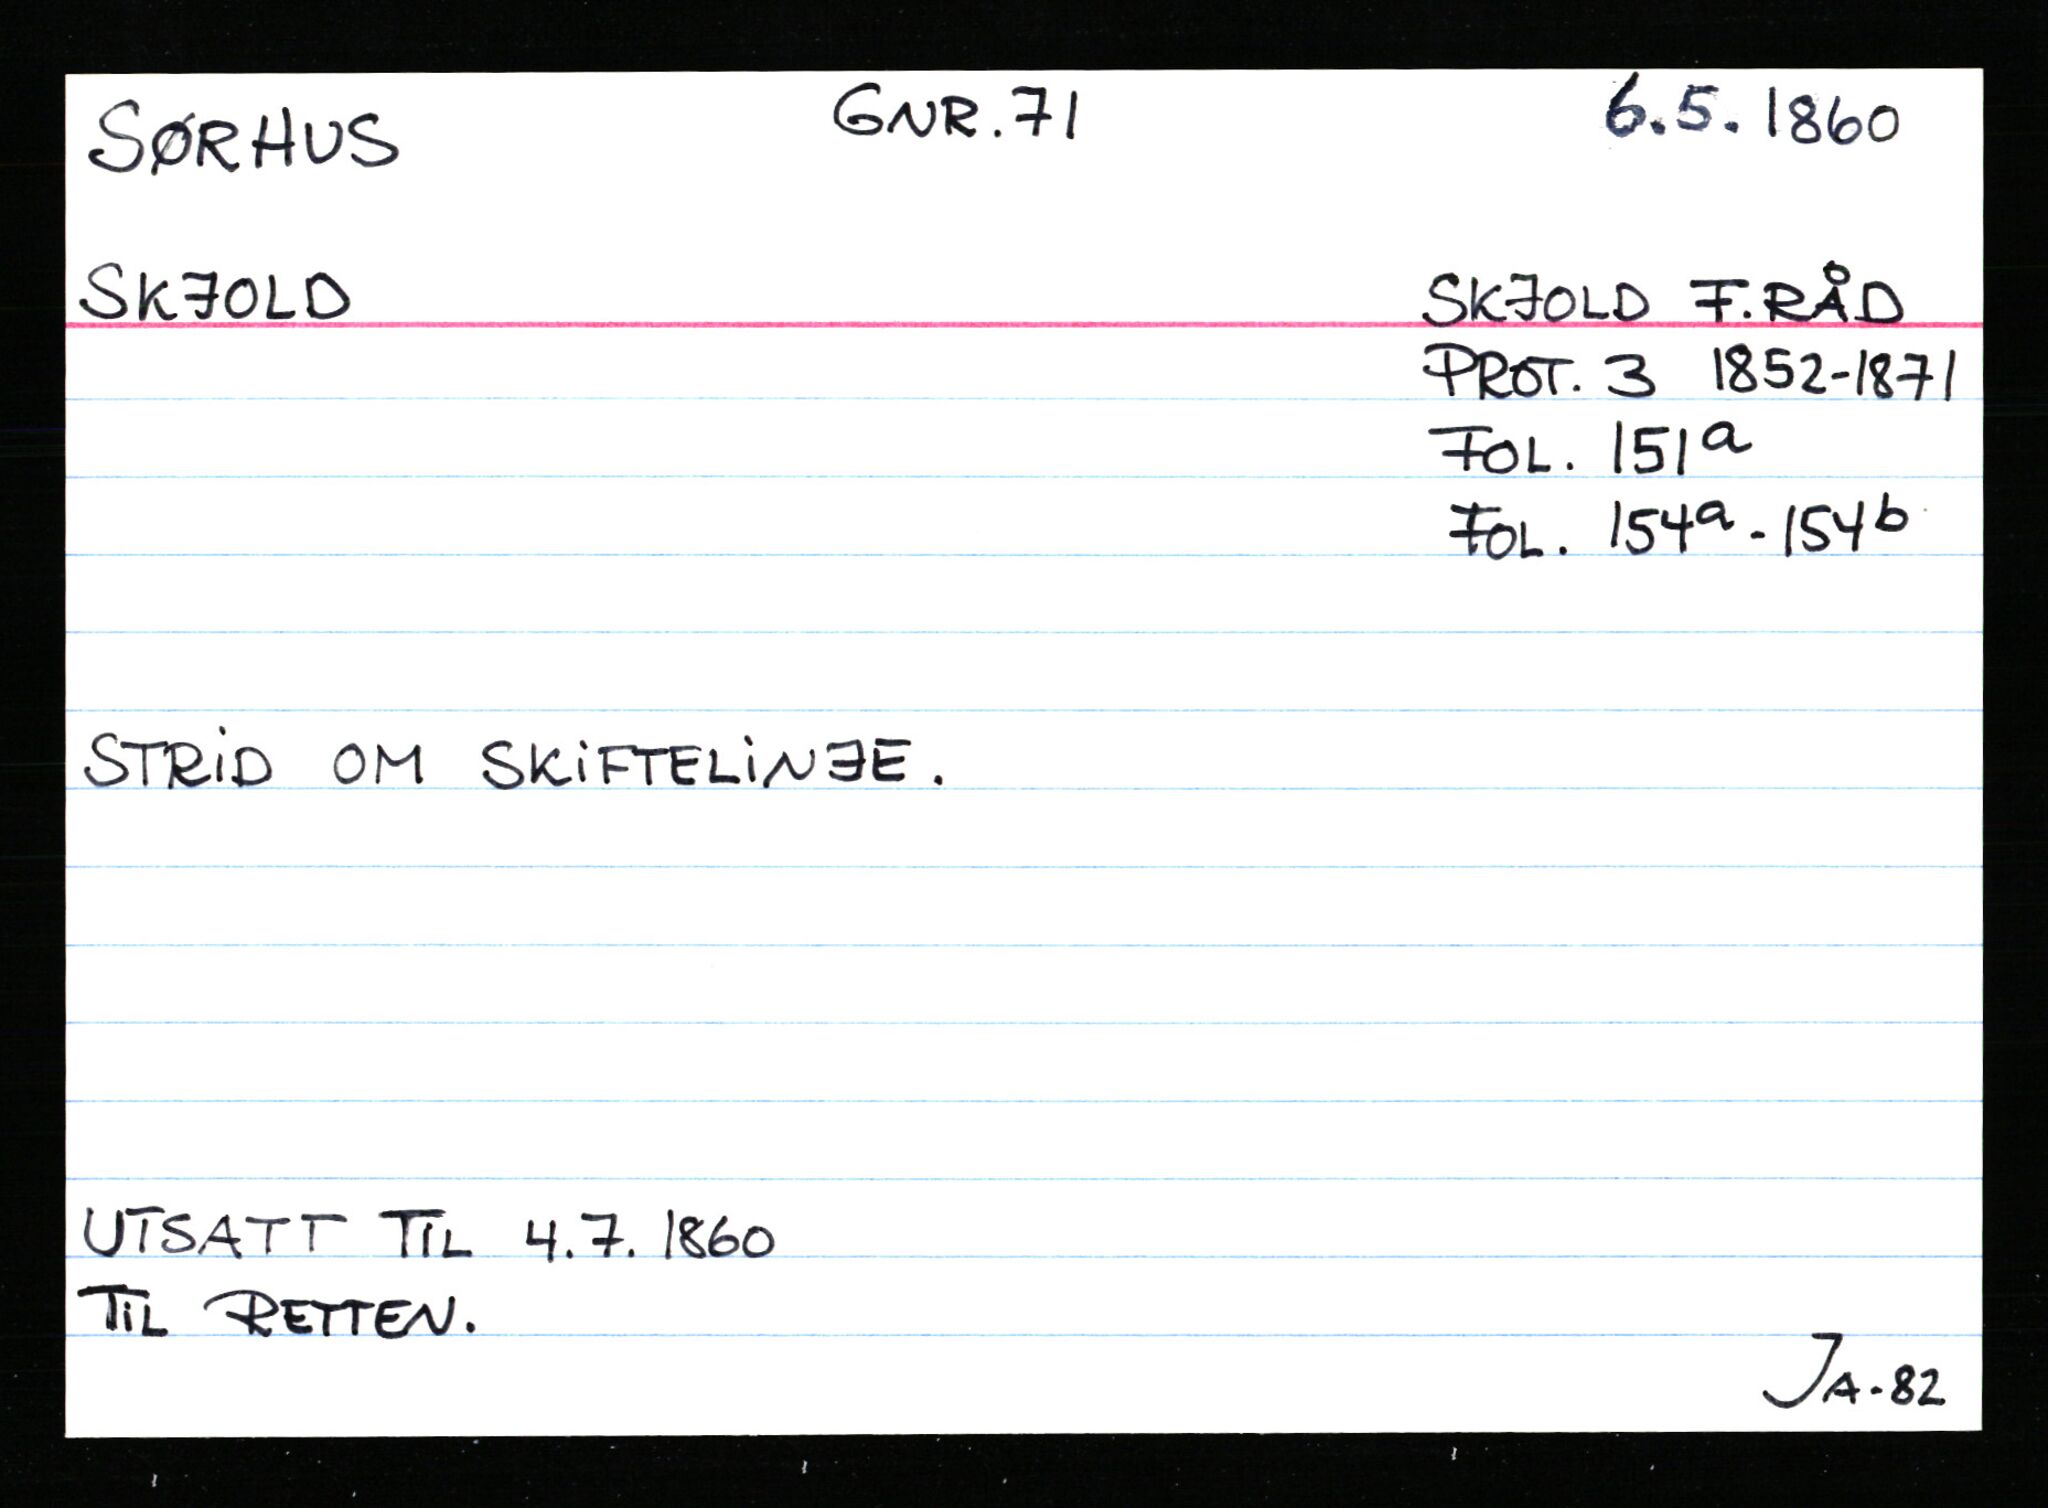 SØRHUS GNR. 71 6.5. 1860
SKJOLD SKJOLD F.RÅD
PROT. 3 1852-1871
FOL. 151a
FOL. 154a - 154b
STRID OM SKIFTELINJE.
UTSATT TIL 4.7. 1860
TIL RETTEN.
JA-82